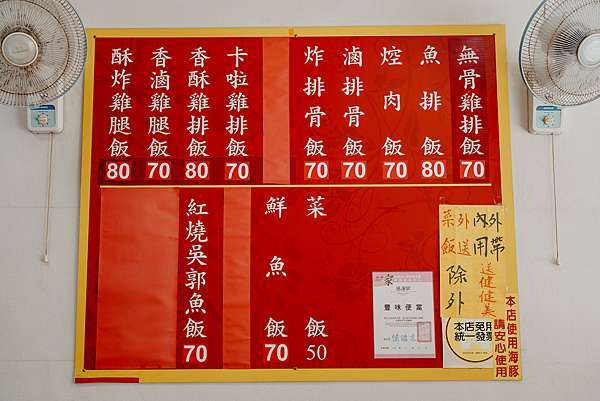 無骨雞排飯 70
魚排飯 80
焢肉飯 70
滷排骨飯 70
炸排骨飯 70
卡啦雞排飯 70
香酥雞排飯 80
香滷雞腿飯 70
酥炸雞腿飯 80
菜飯 50
鮮魚飯 70
紅燒吳郭魚飯 70
內用
外帶
送健健美
外送
菜飯
除外
豐味便當
本店免用
統一發票
本店使用海豚
請安心使用